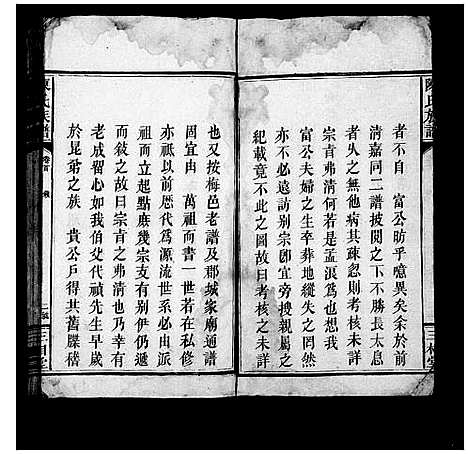 陳氏族譜
者不自　富公昉乎噫異矣余於前
清嘉同二譜披閱之下不勝長太息
者久之無他病其疎忽則考核未詳
宗肯弗清何若是孟浪爲也想我
富公夫婦之生卒葬地縱失之罔然
亦不必遠訪別宗卽宜旁搜親屬之
紀載竟不此之圖故曰考核之未詳
也又按梅邑老譜及郡城家廟通譜
周宜由　萬祖而書一世若在私修
亦祇以前歷代爲源流世系必由派
祖而立起點庶幾宗支有别伊仍遞
而敍之故曰宗肯之弗清也乃幸有
老成留心如我伯父代禎先生早歲
於昆弟之族　貴公戶得其舊牒稽
陳氏族譜
卷首